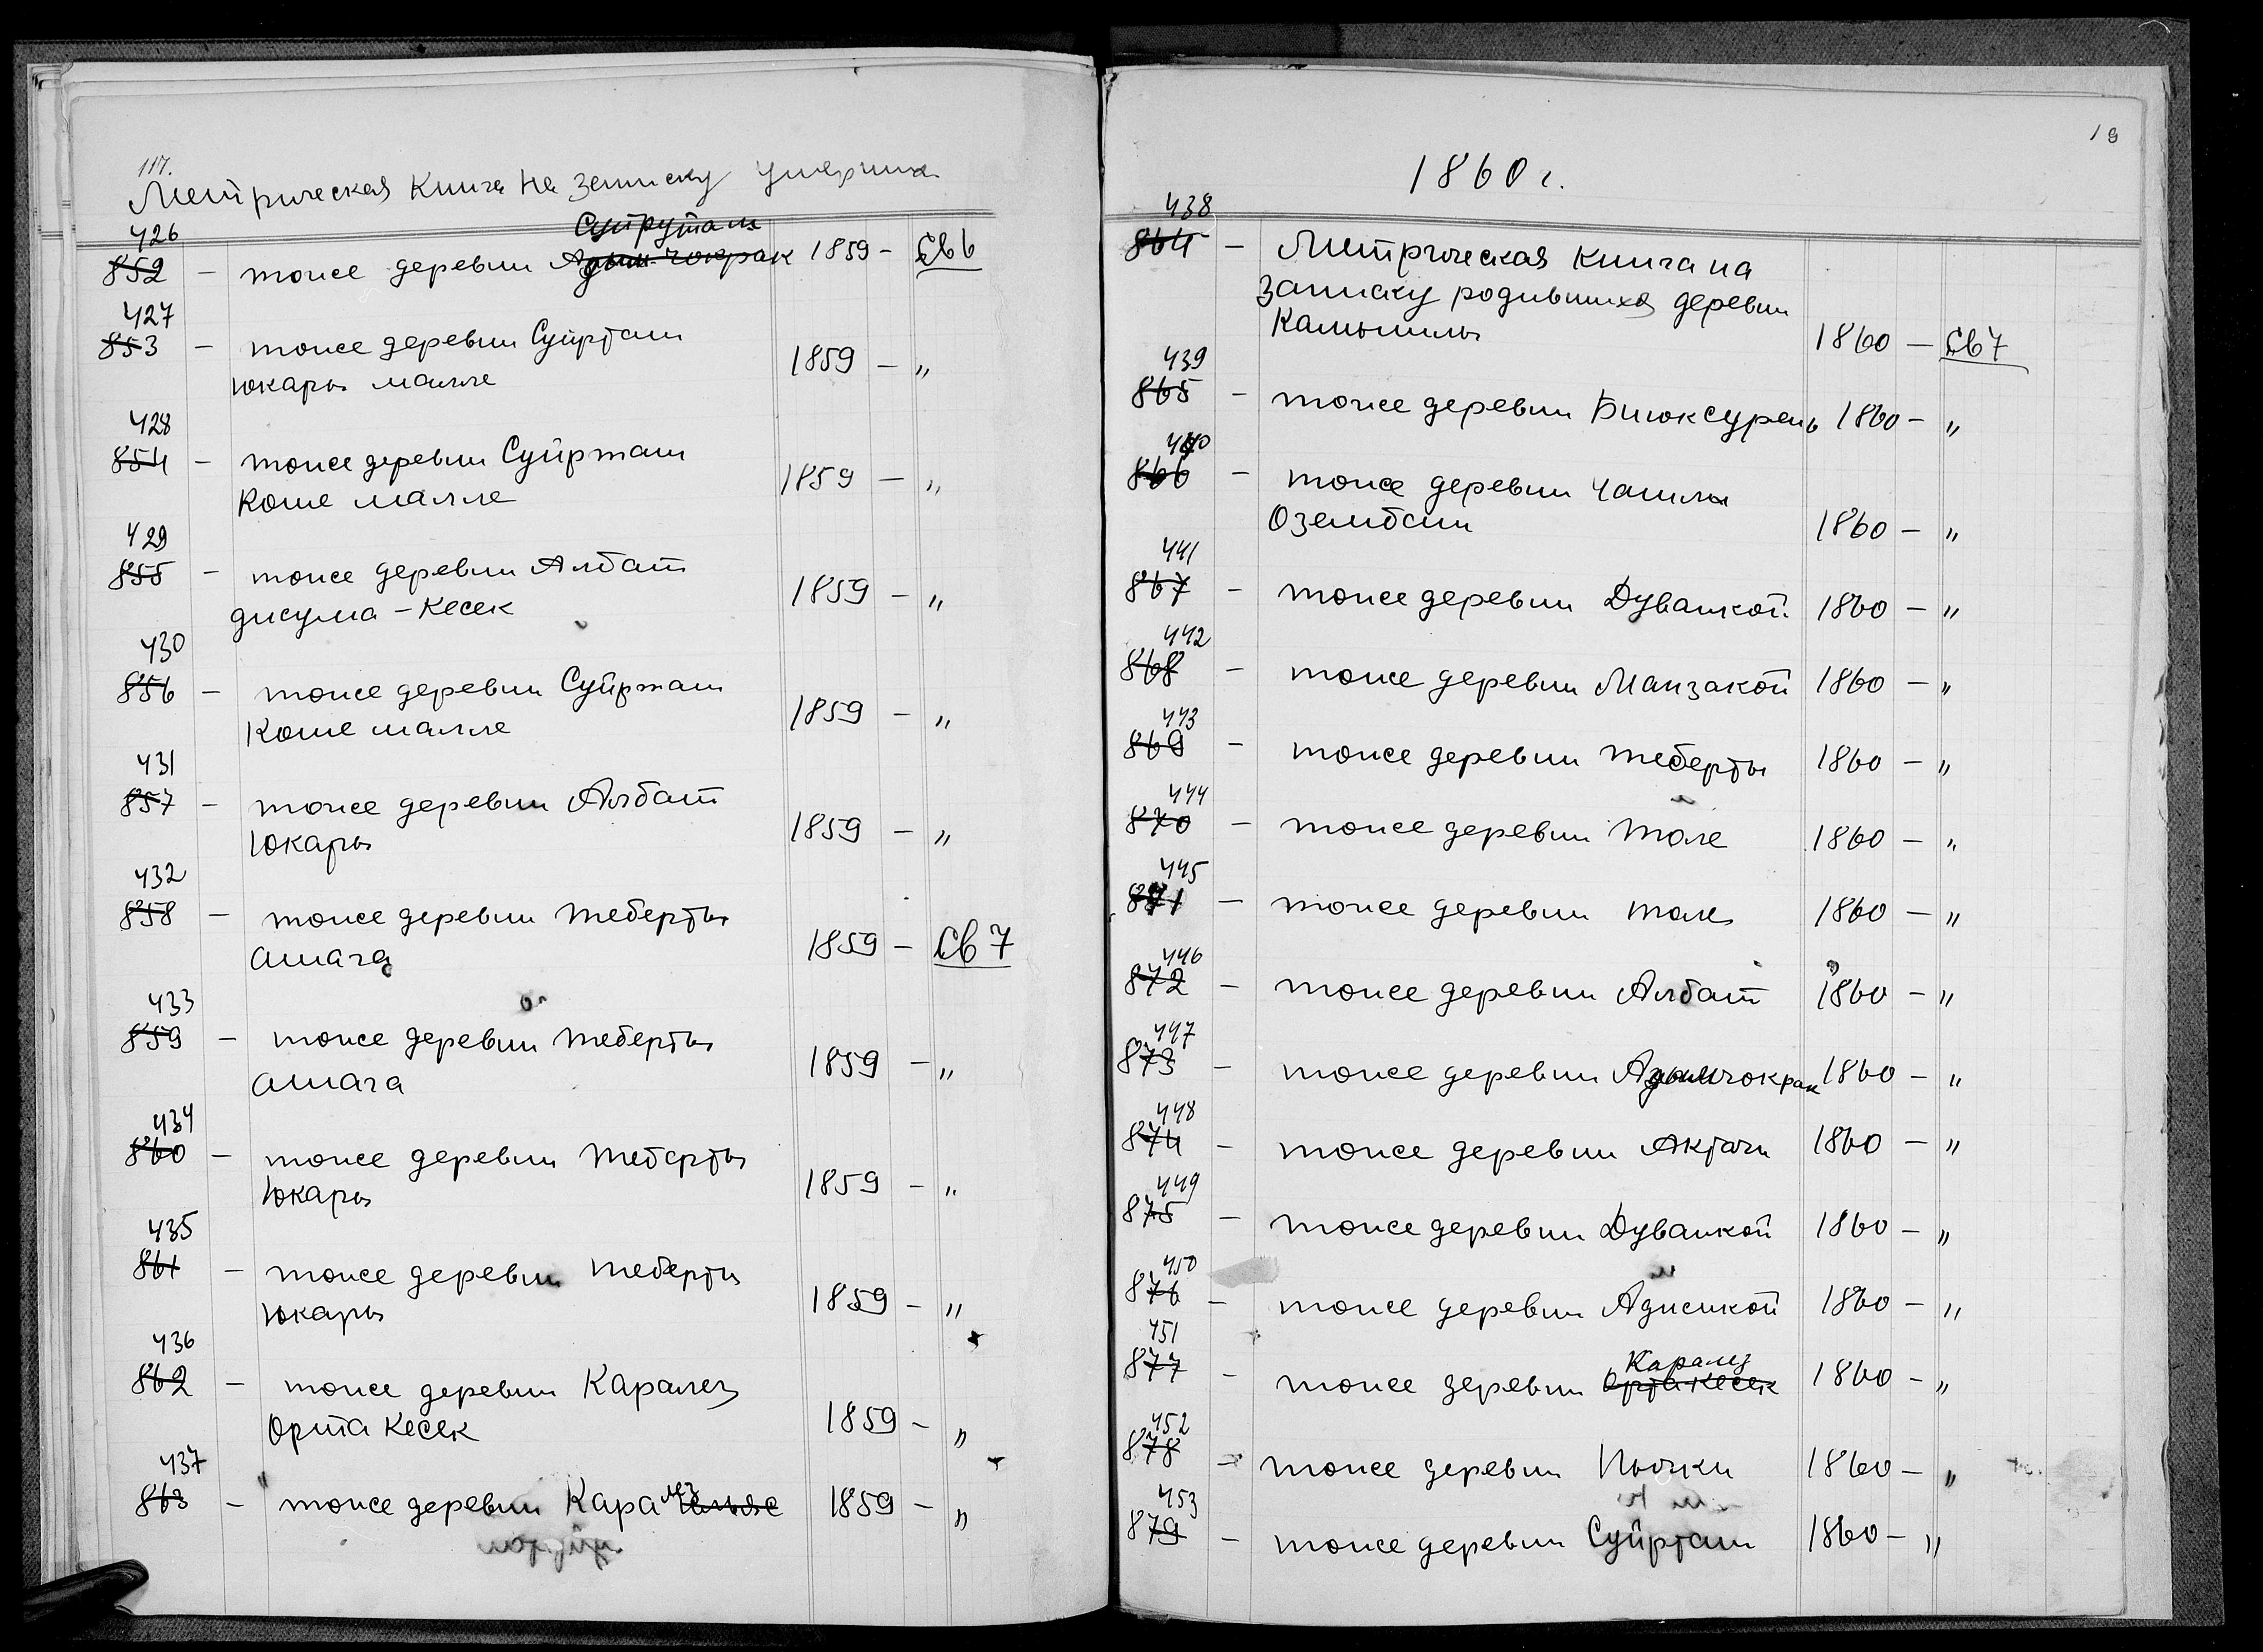 117.
Метрическая Книга на записку умерших
426
Суйруташ
852 – тоже деревни Адым-чокрак 1859 – Св 6
427
853 – тоже деревни Суйрташ
юкары малле 1859 – "
428
854 – тоже деревни Суйрташ
Коше малле 1859 – "
429
855 – тоже деревни Албат
джума-Кесек 1859 – "
430
856 – тоже деревни Суйрташ
Коше малле 1859 – "
431
857 – тоже деревни Албат
Юкары 1859 – "
432
858 – тоже деревни Теберты
ашага 1859 – Св 7
433
859 – тоже деревни Теберты
ашага 1859 – "
434
860 – тоже деревни Теберты
Юкары 1859 – "
435
861 – тоже деревни Теберты
Юкары 1859 – "
436
862 – тоже деревни Каралез
Орта Кесек 1859 – "
437
863 – тоже деревни Кара лез 1859 – "
1860 г.
438
864 – Метрическая Книга на
записку родившихся деревни
Камышлы 1860 – Св 7
439
865 – тоже деревни Биюксурень 1860 – "
440
866 – тоже деревни Чашлы
Озембаш 1860 – "
441
867 – тоже деревни Дуванкой 1860 – "
442
868 – тоже деревни Манзакой 1860 – "
443
869 – тоже деревни Теберты 1860 – "
444
870 – тоже деревни Толе 1860 – "
445
871 – тоже деревни Толе 1860 – "
446
872 – тоже деревни Албат 1860 – "
447
873 – тоже деревни Адымчокрак 1860 – "
448
874 – тоже деревни Актачи 1860 – "
449
875 – тоже деревни Дуванкой 1860 – "
450
876 – тоже деревни Аджикой 1860 – "
451
Каралез
877 – тоже деревни Орта Кесек 1860 – "
452
878 – тоже деревни Пычки 1860 – "
453
879 – тоже деревни Суйрташ 1860 – "